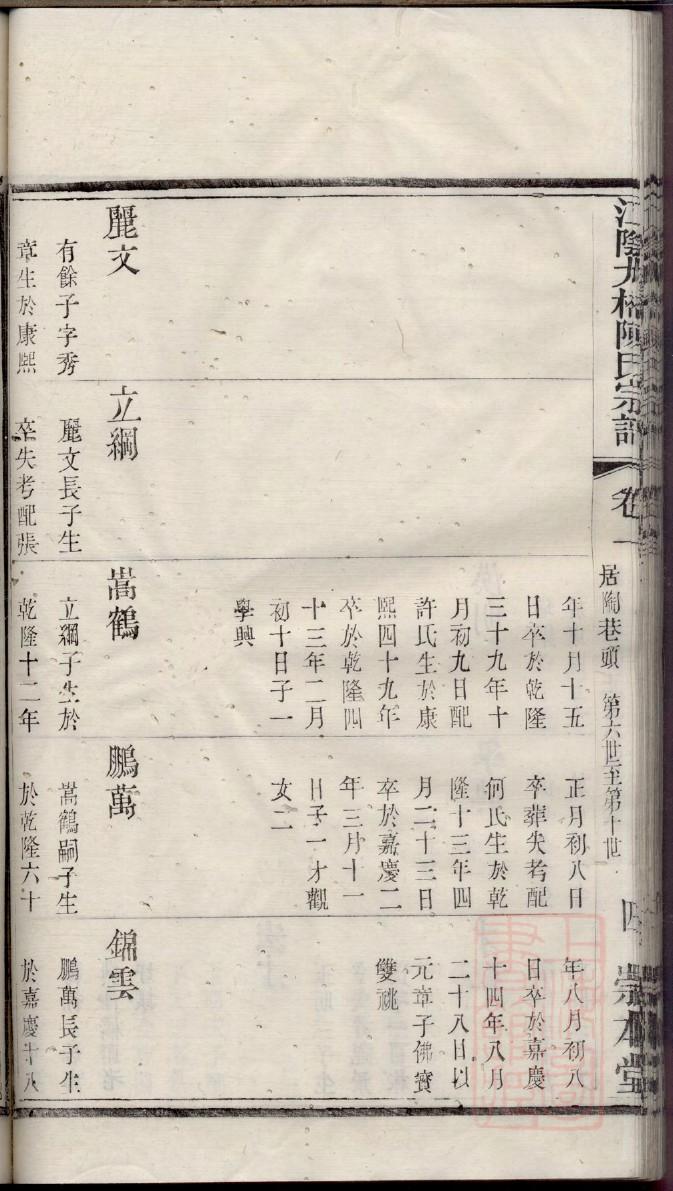 江陰
陳氏宗譜
卷一
居陶巷頭 第六世至第十世
崇本堂
年十月十五
日卒於乾隆
三十九年十
月初九日配
許氏生於康
熙四十九年
卒於乾隆四
十三年二月
初十日子一
學興
正月初八日
卒葬失考配
何氏生於乾
隆十三年四
月二十三日
卒於嘉慶二
年三月十一
日子一才觀
女二
年八月初八
日卒於嘉慶
十四年八月
二十八日以
元章子佛寶
雙祧
麗文
有餘子字秀
章生於康熙
立綱
麗文長子生
卒失考配張
嵩鶴
立綱子生於
乾隆十二年
鵬萬
嵩鶴嗣子生
於乾隆六十
錦雲
鵬萬長子生
於嘉慶十八